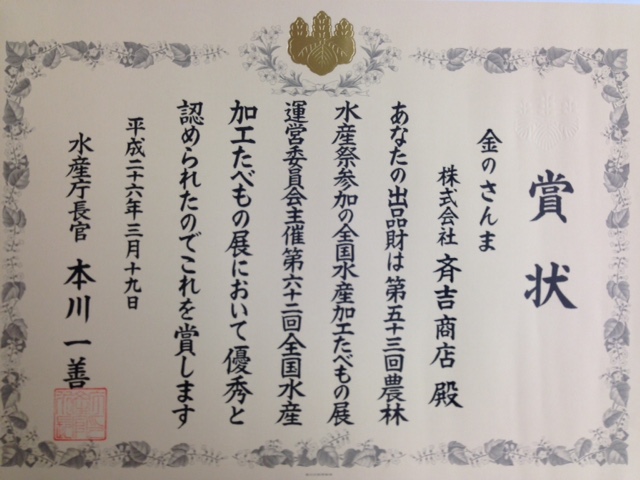 賞状
金のさんま
株式会社 斉吉商店 殿
あなたの出品財は第五十三回農林
水産祭参加の全国水産加工たべもの展
運営委員会主催第六十二回全国水産
加工たべもの展において優秀と
認められたのでこれを賞します
平成二十六年三月十九日
水産庁長官 本川一善